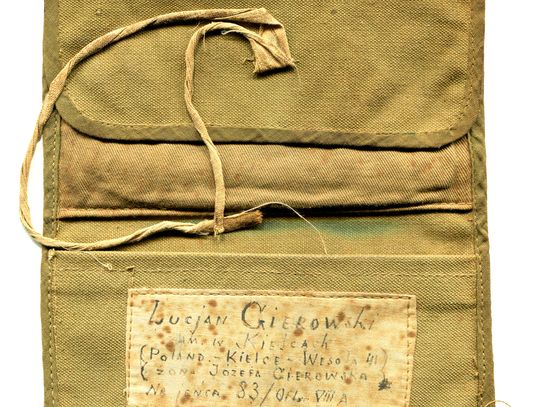 LUCJAN GIEROWSKI
w KIELCACH
(POLAND - KIELCE - WESOŁA
ŻONA JÓZEFA GIEROWSKA
No JEŃCA 83/Ofl. VIII A